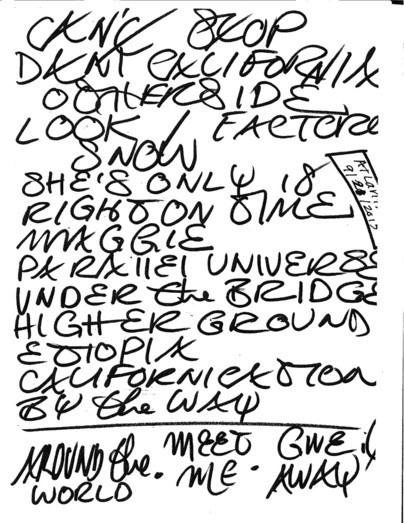 CAN'T STOP
DANI CALIFORNIA
OTHERSIDE
LOOK / FACTORE
SNOW
SHE'S ONLY 18
RIGHT ON TIME
MAGGIE
PARALLEL UNIVERSE
UNDER the BRIDGE
HIGHER GROUND
ETHIOPIA
CALIFORNICATION
BY the WAY
AROUND the WORLD · MEET ME · GIVE it AWAY
9/2017